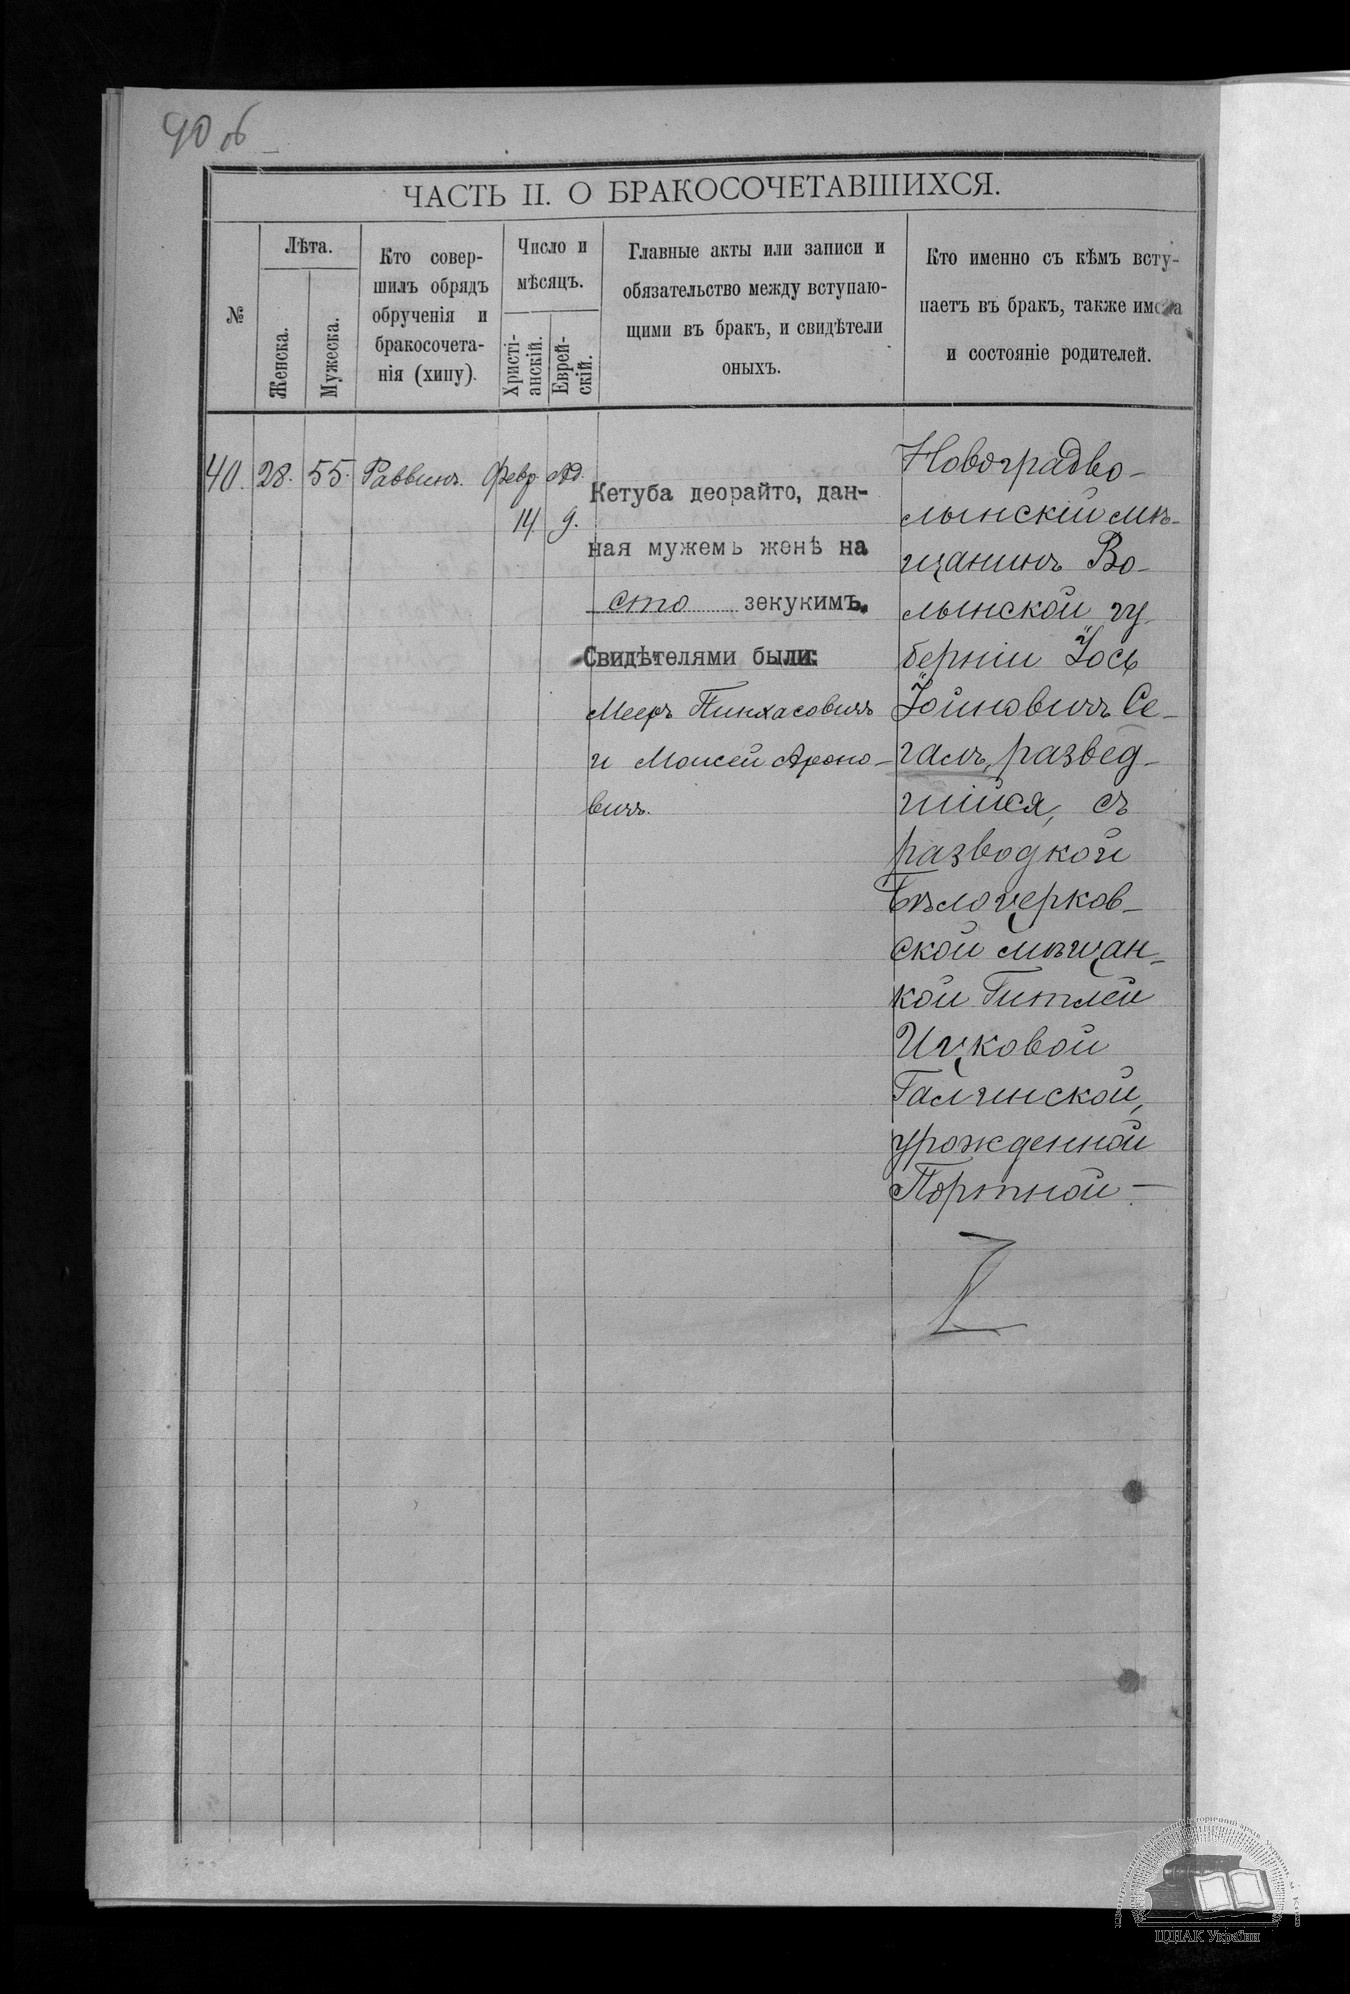 40 об
ЧАСТЬ II. О БРАКОСОЧЕТАВШИХСЯ.
№
Лѣта.
Женска.
Мужеска.
Кто совер-
шилъ обрядъ
обрученія и
бракосочета-
нія (хипу).
Число и
мѣсяцъ.
Христі-
анскій.
Еврей-
скій.
Главные акты или записи и
обязательство между вступаю-
щими въ бракъ, и свидѣтели
оныхъ.
Кто именно съ кѣмъ всту-
паетъ въ бракъ, также имена
и состояніе родителей.
40. 28. 55. Раввинъ. Февр. Ад.
14 9.
Кетуба деорайто, дан-
ная мужемъ женѣ на
сто зекукимъ.
Свидѣтелями были:
Мееръ Пинхасовичъ
и Моисей Ароно-
вичъ.
Новоградво-
лынскій мѣ-
щанинъ Во-
лынской гу-
берніи Іось
Іойновичъ Се-
галъ, развед-
шійся, съ
разводкой
Бѣлоцерков-
ской мѣщан-
кой Гитлей
Ицковой
Галчинской,
урожденной
Портной —
ЦДІАК України